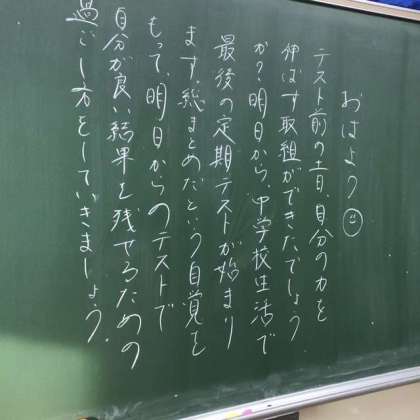 おはよう☺
テスト前の土日、自分の力を
伸ばす取組ができたでしょう
か？明日から、中学校生活で
最後の定期テストが始まり
ます。総まとめだという自覚を
もって、明日からのテストで
自分が良い結果を残せるための
過ごし方をしていきましょう。